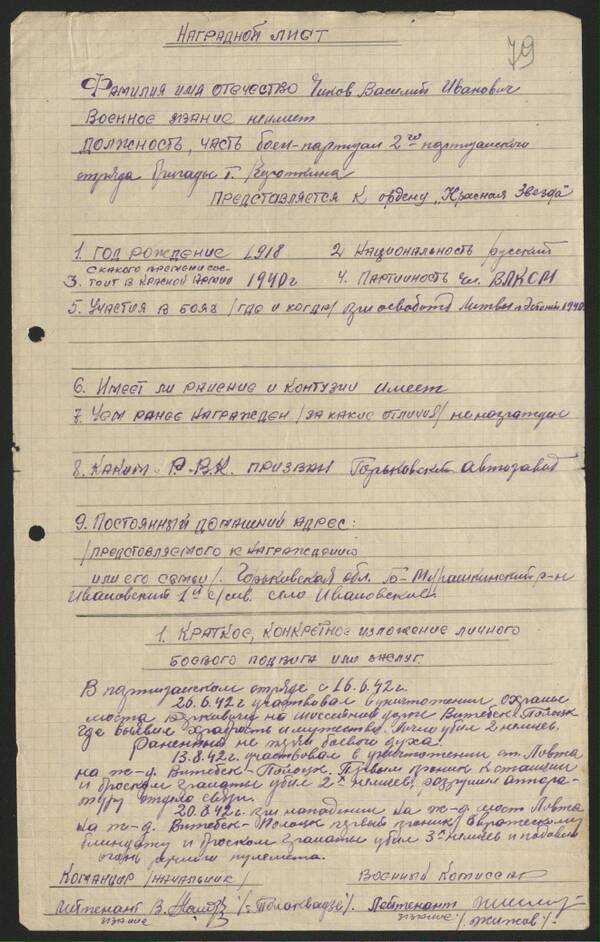 НАГРАДНОЙ ЛИСТ
79
Фамилия имя отечество Чиков Василий Иванович
Военное звание неимеет
должность, часть боец-партизан 2го партизанского
отряда бригады т. Короткина
представляется к ордену „Красная Звезда"
1. год рождение 1918 2. Национальность русский
3. с какого времени сос-
тоит в Красной Армии 1940г 4. Партийность чл. ВЛКСМ
5. Участия в боях /где и когда/ при освобожд Литвы и Эстонии 1940
6. Имеет ли ранение и контузии имеет
7. Чем ранее награжден /за какие отличия/ не награжден
8. Каким Р.В.К. призван Горьковский автозавод
9. Постоянный домашний адрес:
/представляемого к награждению
или его семьи/. Горьковская обл. Б-Мурашкинский р-н
Ивановский 1й с/сов. село Ивановское.
1. Краткое, конкретное изложение личного
боевого подвига или заслуг.
В партизанском отряде с 16.6.42г.
20.6.42г участвовал в уничтожении охраны
моста на шоссейной дороге Витебск-Полоцк
где выявил храбрость и мужество. Лично убил 2 немцев.
Раненный не терял боевого духа.
13.8.42г. участвовал в уничтожении ст. Ловжа
на ж-д. Витебск-Полоцк. Первым проник к станции
и броском гранаты убил 2х немцев, разрушил аппора-
туру отдела связи.
20.8.42г. при нападении на ж-д мост Ловжа
на ж-д. Витебск-Полоцк первый проник вражескому
блиндажу и броском гранаты убил 3х немцев и подавил
огонь ручного пулемета.
Командир /начальник/ Военный Комиссар
Лейтенант В. /Болоквадзе/. Лейтенант
звание звание /Жижов/.